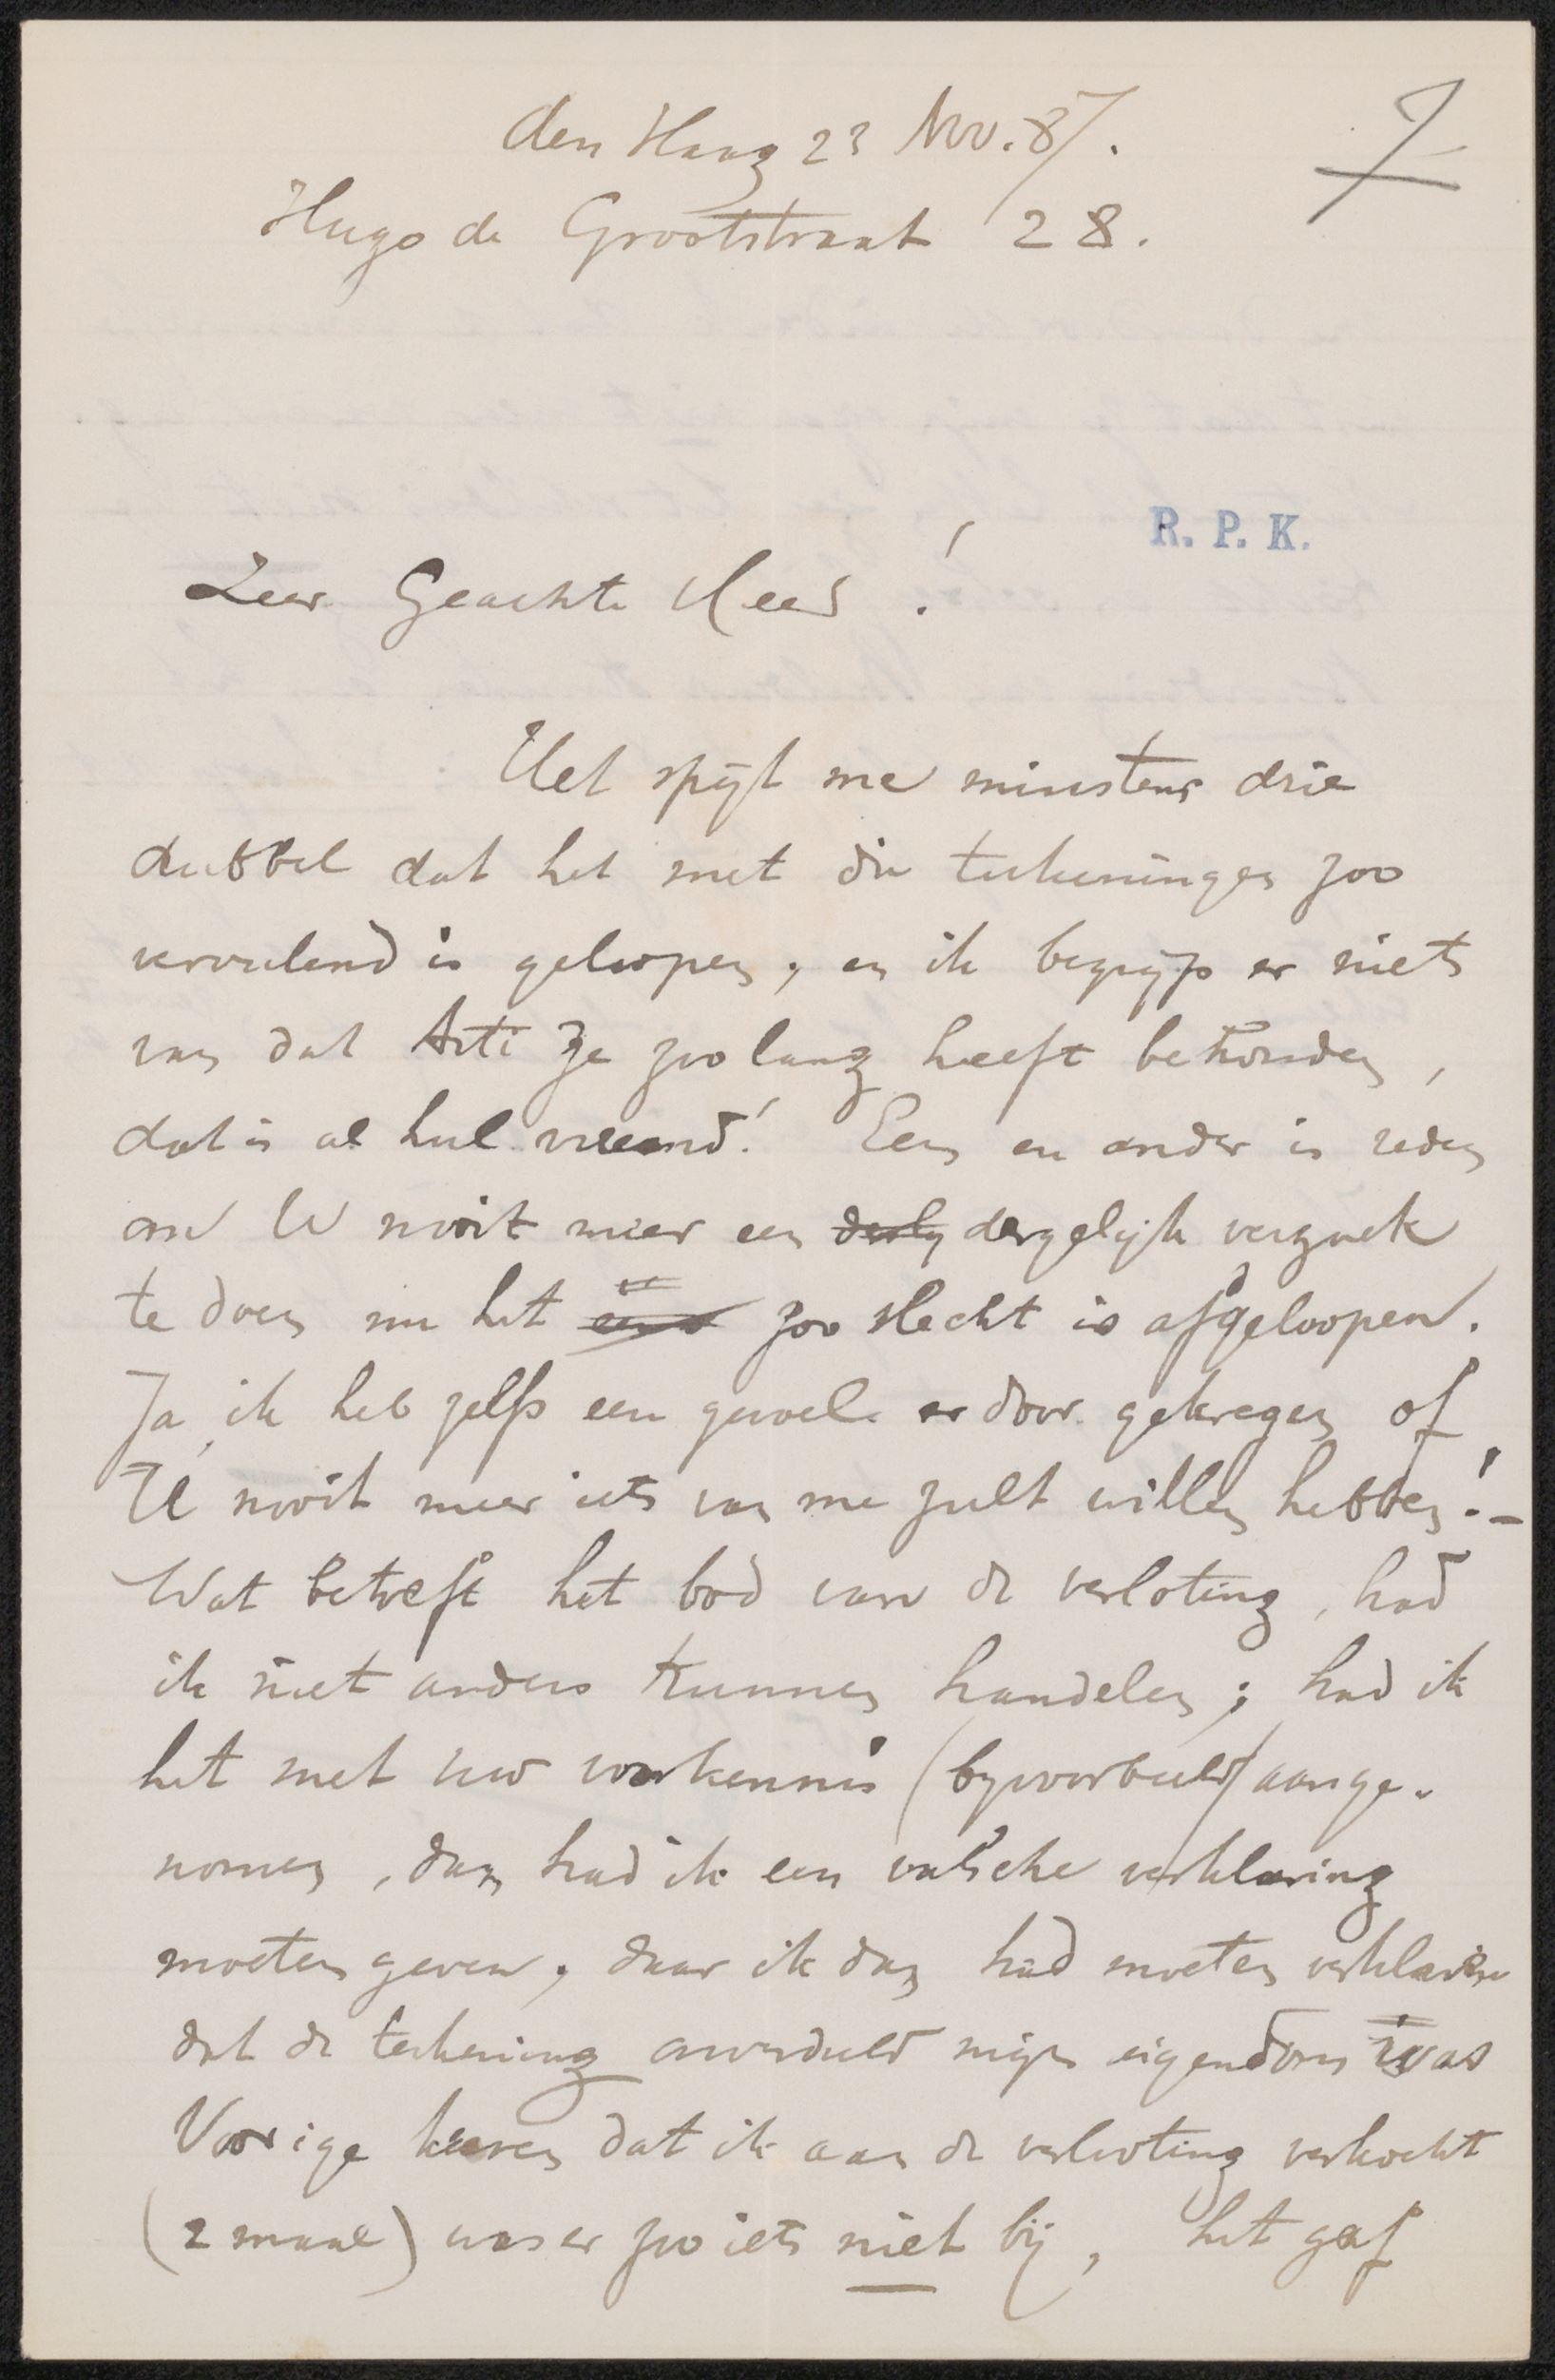 den Haag 23 Nov. 87.
7
Hugo de Grootstraat 28.
R. P. K.
Zeer Geachte Heer !
Het spijt me minstens drie
dubbel dat het met die tekeningen zoo
vervelend is geloopen, en ik begrijp er niets
van dat Arti ze zoo lang heeft behouden,
dat is al heel vreemd! Een en ander is reden
om U nooit meer een dergelijk verzoek
te doen nu het zoo slecht is afgeloopen.
Ja, ik heb zelfs een gevoel er door gekregen of
U nooit meer iets van me zult willen hebben! -
Wat betreft het bod van de verloting, had
ik niet anders kunnen handelen; had ik
het met uw voorkennis (byvoorbeeld) aange-
nomen, dan had ik een valsche verklaring
moeten geven, daar ik dan had moeten verklaren
dat de tekening onverdeeld mijn eigendom was
Vorige keeren dat ik aan de verloting verkocht
(2 maal) was er zoo iets niet bij, het gaf